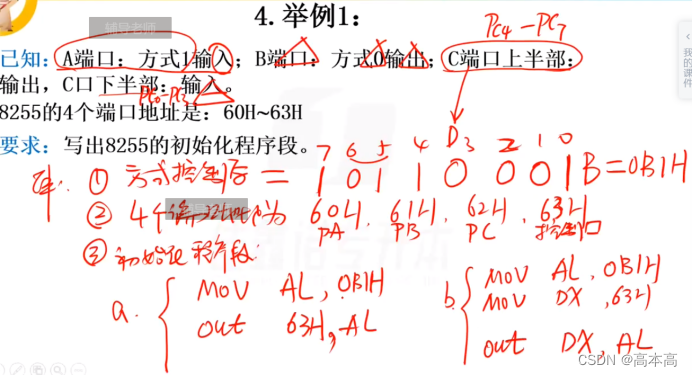 辅导老师
4.举例1:
PC4-PC7
已知: A端口: 方式1输入; B端口: 方式0输出; C端口上半部:
输出, C口下半部: 输入。
PC0-PC3
8255的4个端口地址是: 60H~63H
要求: 写出8255的初始化程序段。
7 6 5 4 D3 2 1 0
解: ① 方式控制字 = 1 0 1 1 0 0 0 1 B = 0B1H
② 4个 为 60H, 61H, 62H, 63H
PA PB PC 控制口
③ 初始化程序段:
a. MOV AL, 0B1H
out 63H, AL
b. MOV AL, 0B1H
MOV DX, 63H
out DX, AL
我的课件
CSDN @高本高